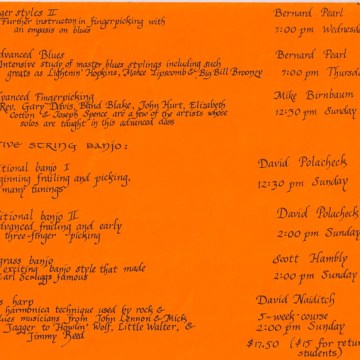 ger styles II Bernard Pearl
Further instruction in fingerpicking with 7:00 pm Wednesda
an empasis on blues
dvanced Blues Bernard Pearl
Intensive study of master blues stylings including such 7:00 pm Thursd
greats as Lightnin' Hopkins, Mance Lipscomb & Big Bill Broonzy
dvanced Fingerpicking Mike Birnbaum
Rev. Gary Davis, Blind Blake, John Hurt, Elizabeth 12:30 pm Sunday
Cotton & Joseph Spence are a few of the artists whose
solos are taught in this advanced class
IVE STRING BANJO:
itional banjo I David Polacheck
ginning frailing and picking, 12:30 pm Sunday
many tunings
itional banjo II David Polacheck
dvanced frailing and early 2:00 pm Sunda
three-finger picking
grass banjo Scott Hambly
exciting banjo style that made 2:00 pm Sunday
arl Scruggs famous
s harp David Naiditch
harmonica technique used by rock & 5-week course
lues musicians from John Lennon & Mick 2:00 pm Sunday
Jagger to "Howlin' Wolf, Little Walter, & $17.50 ($15 for retur
Jimmy Reed students)